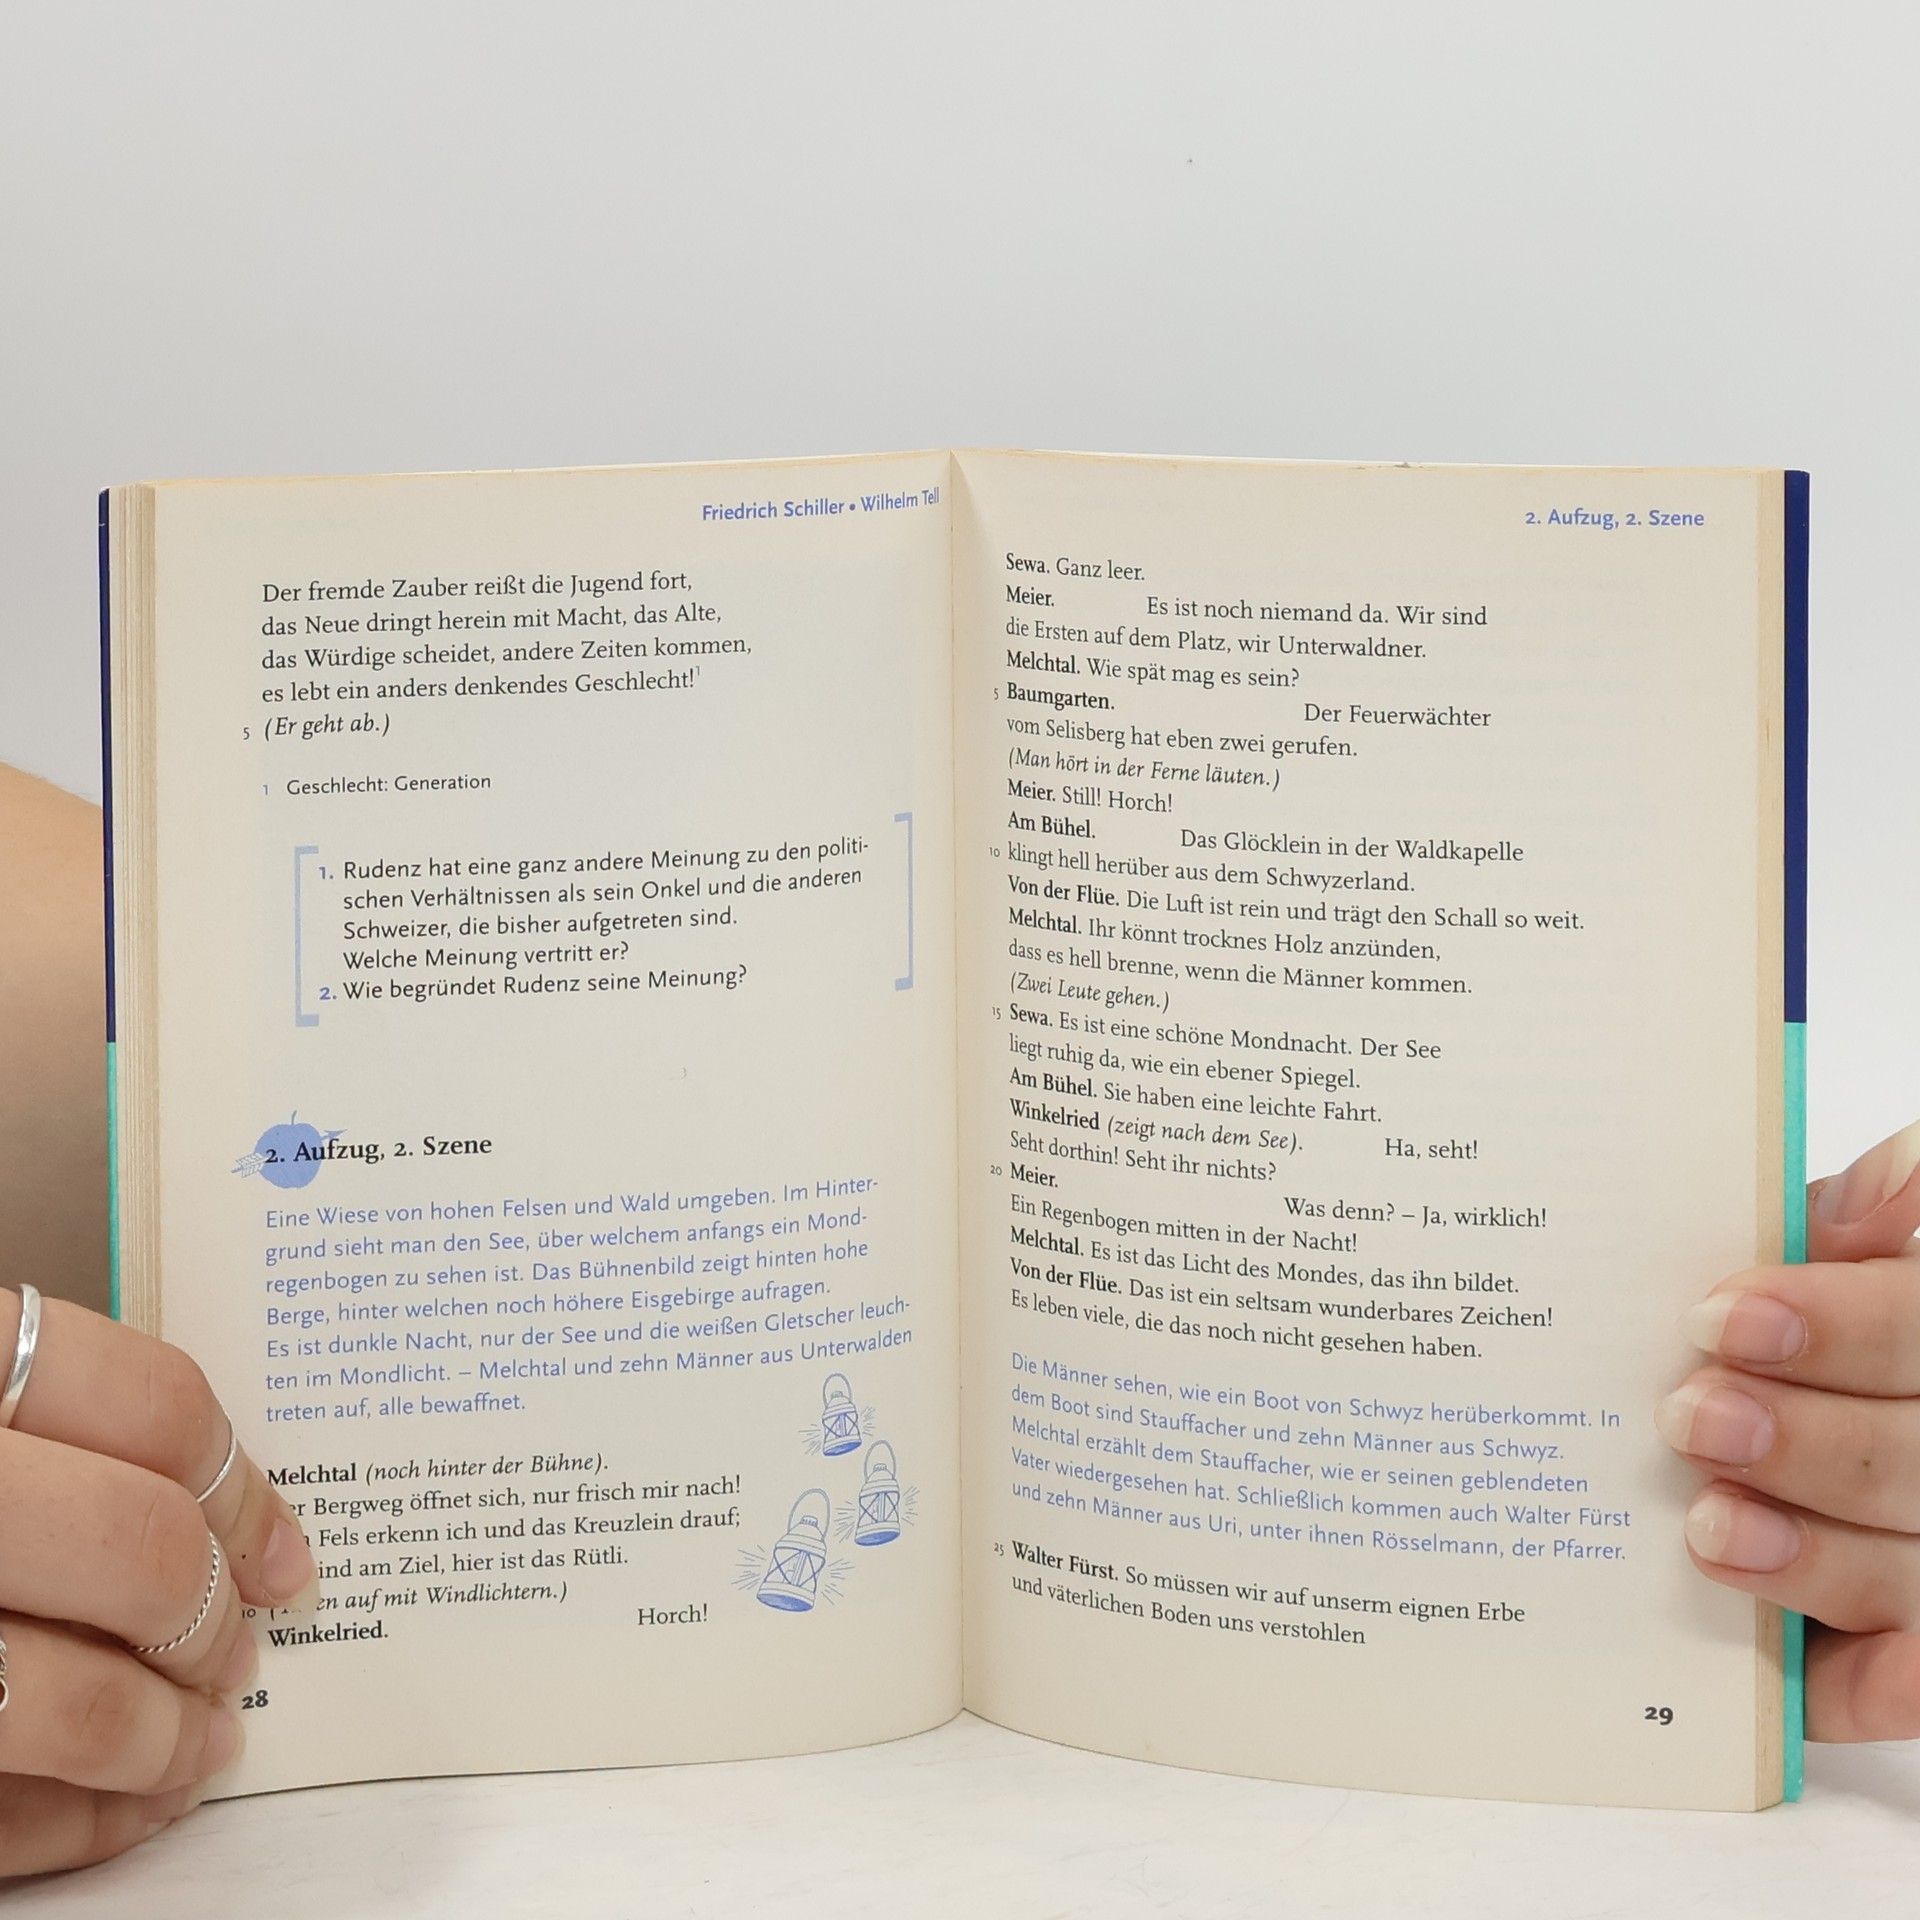 Friedrich Schiller • Wilhelm Tell
Der fremde Zauber reißt die Jugend fort,
das Neue dringt herein mit Macht, das Alte,
das Würdige scheidet, andere Zeiten kommen,
es lebt ein anders denkendes Geschlecht!¹
5 (Er geht ab.)
1 Geschlecht: Generation
1. Rudenz hat eine ganz andere Meinung zu den politi-
schen Verhältnissen als sein Onkel und die anderen
Schweizer, die bisher aufgetreten sind.
Welche Meinung vertritt er?
2. Wie begründet Rudenz seine Meinung?
2. Aufzug, 2. Szene
Eine Wiese von hohen Felsen und Wald umgeben. Im Hinter-
grund sieht man den See, über welchem anfangs ein Mond-
regenbogen zu sehen ist. Das Bühnenbild zeigt hinten hohe
Berge, hinter welchen noch höhere Eisgebirge aufragen.
Es ist dunkle Nacht, nur der See und die weißen Gletscher leuch-
ten im Mondlicht. – Melchtal und zehn Männer aus Unterwalden
treten auf, alle bewaffnet.
Melchtal (noch hinter der Bühne).
Bergweg öffnet sich, nur frisch mir nach!
Fels erkenn ich und das Kreuzlein drauf;
am Ziel, hier ist das Rütli.
10 auf mit Windlichtern.)
Winkelried. Horch!
28
2. Aufzug, 2. Szene
Sewa. Ganz leer.
Meier. Es ist noch niemand da. Wir sind
die Ersten auf dem Platz, wir Unterwaldner.
Melchtal. Wie spät mag es sein?
5 Baumgarten. Der Feuerwächter
vom Selisberg hat eben zwei gerufen.
(Man hört in der Ferne läuten.)
Meier. Still! Horch!
Am Bühel. Das Glöcklein in der Waldkapelle
10 klingt hell herüber aus dem Schwyzerland.
Von der Flüe. Die Luft ist rein und trägt den Schall so weit.
Melchtal. Ihr könnt trocknes Holz anzünden,
dass es hell brenne, wenn die Männer kommen.
(Zwei Leute gehen.)
15 Sewa. Es ist eine schöne Mondnacht. Der See
liegt ruhig da, wie ein ebener Spiegel.
Am Bühel. Sie haben eine leichte Fahrt.
Winkelried (zeigt nach dem See). Ha, seht!
Seht dorthin! Seht ihr nichts?
20 Meier. Was denn? – Ja, wirklich!
Ein Regenbogen mitten in der Nacht!
Melchtal. Es ist das Licht des Mondes, das ihn bildet.
Von der Flüe. Das ist ein seltsam wunderbares Zeichen!
Es leben viele, die das noch nicht gesehen haben.
Die Männer sehen, wie ein Boot von Schwyz herüberkommt. In
dem Boot sind Stauffacher und zehn Männer aus Schwyz.
Melchtal erzählt dem Stauffacher, wie er seinen geblendeten
Vater wiedergesehen hat. Schließlich kommen auch Walter Fürst
und zehn Männer aus Uri, unter ihnen Rösselmann, der Pfarrer.
25 Walter Fürst. So müssen wir auf unserm eignen Erbe
und väterlichen Boden uns verstohlen
29